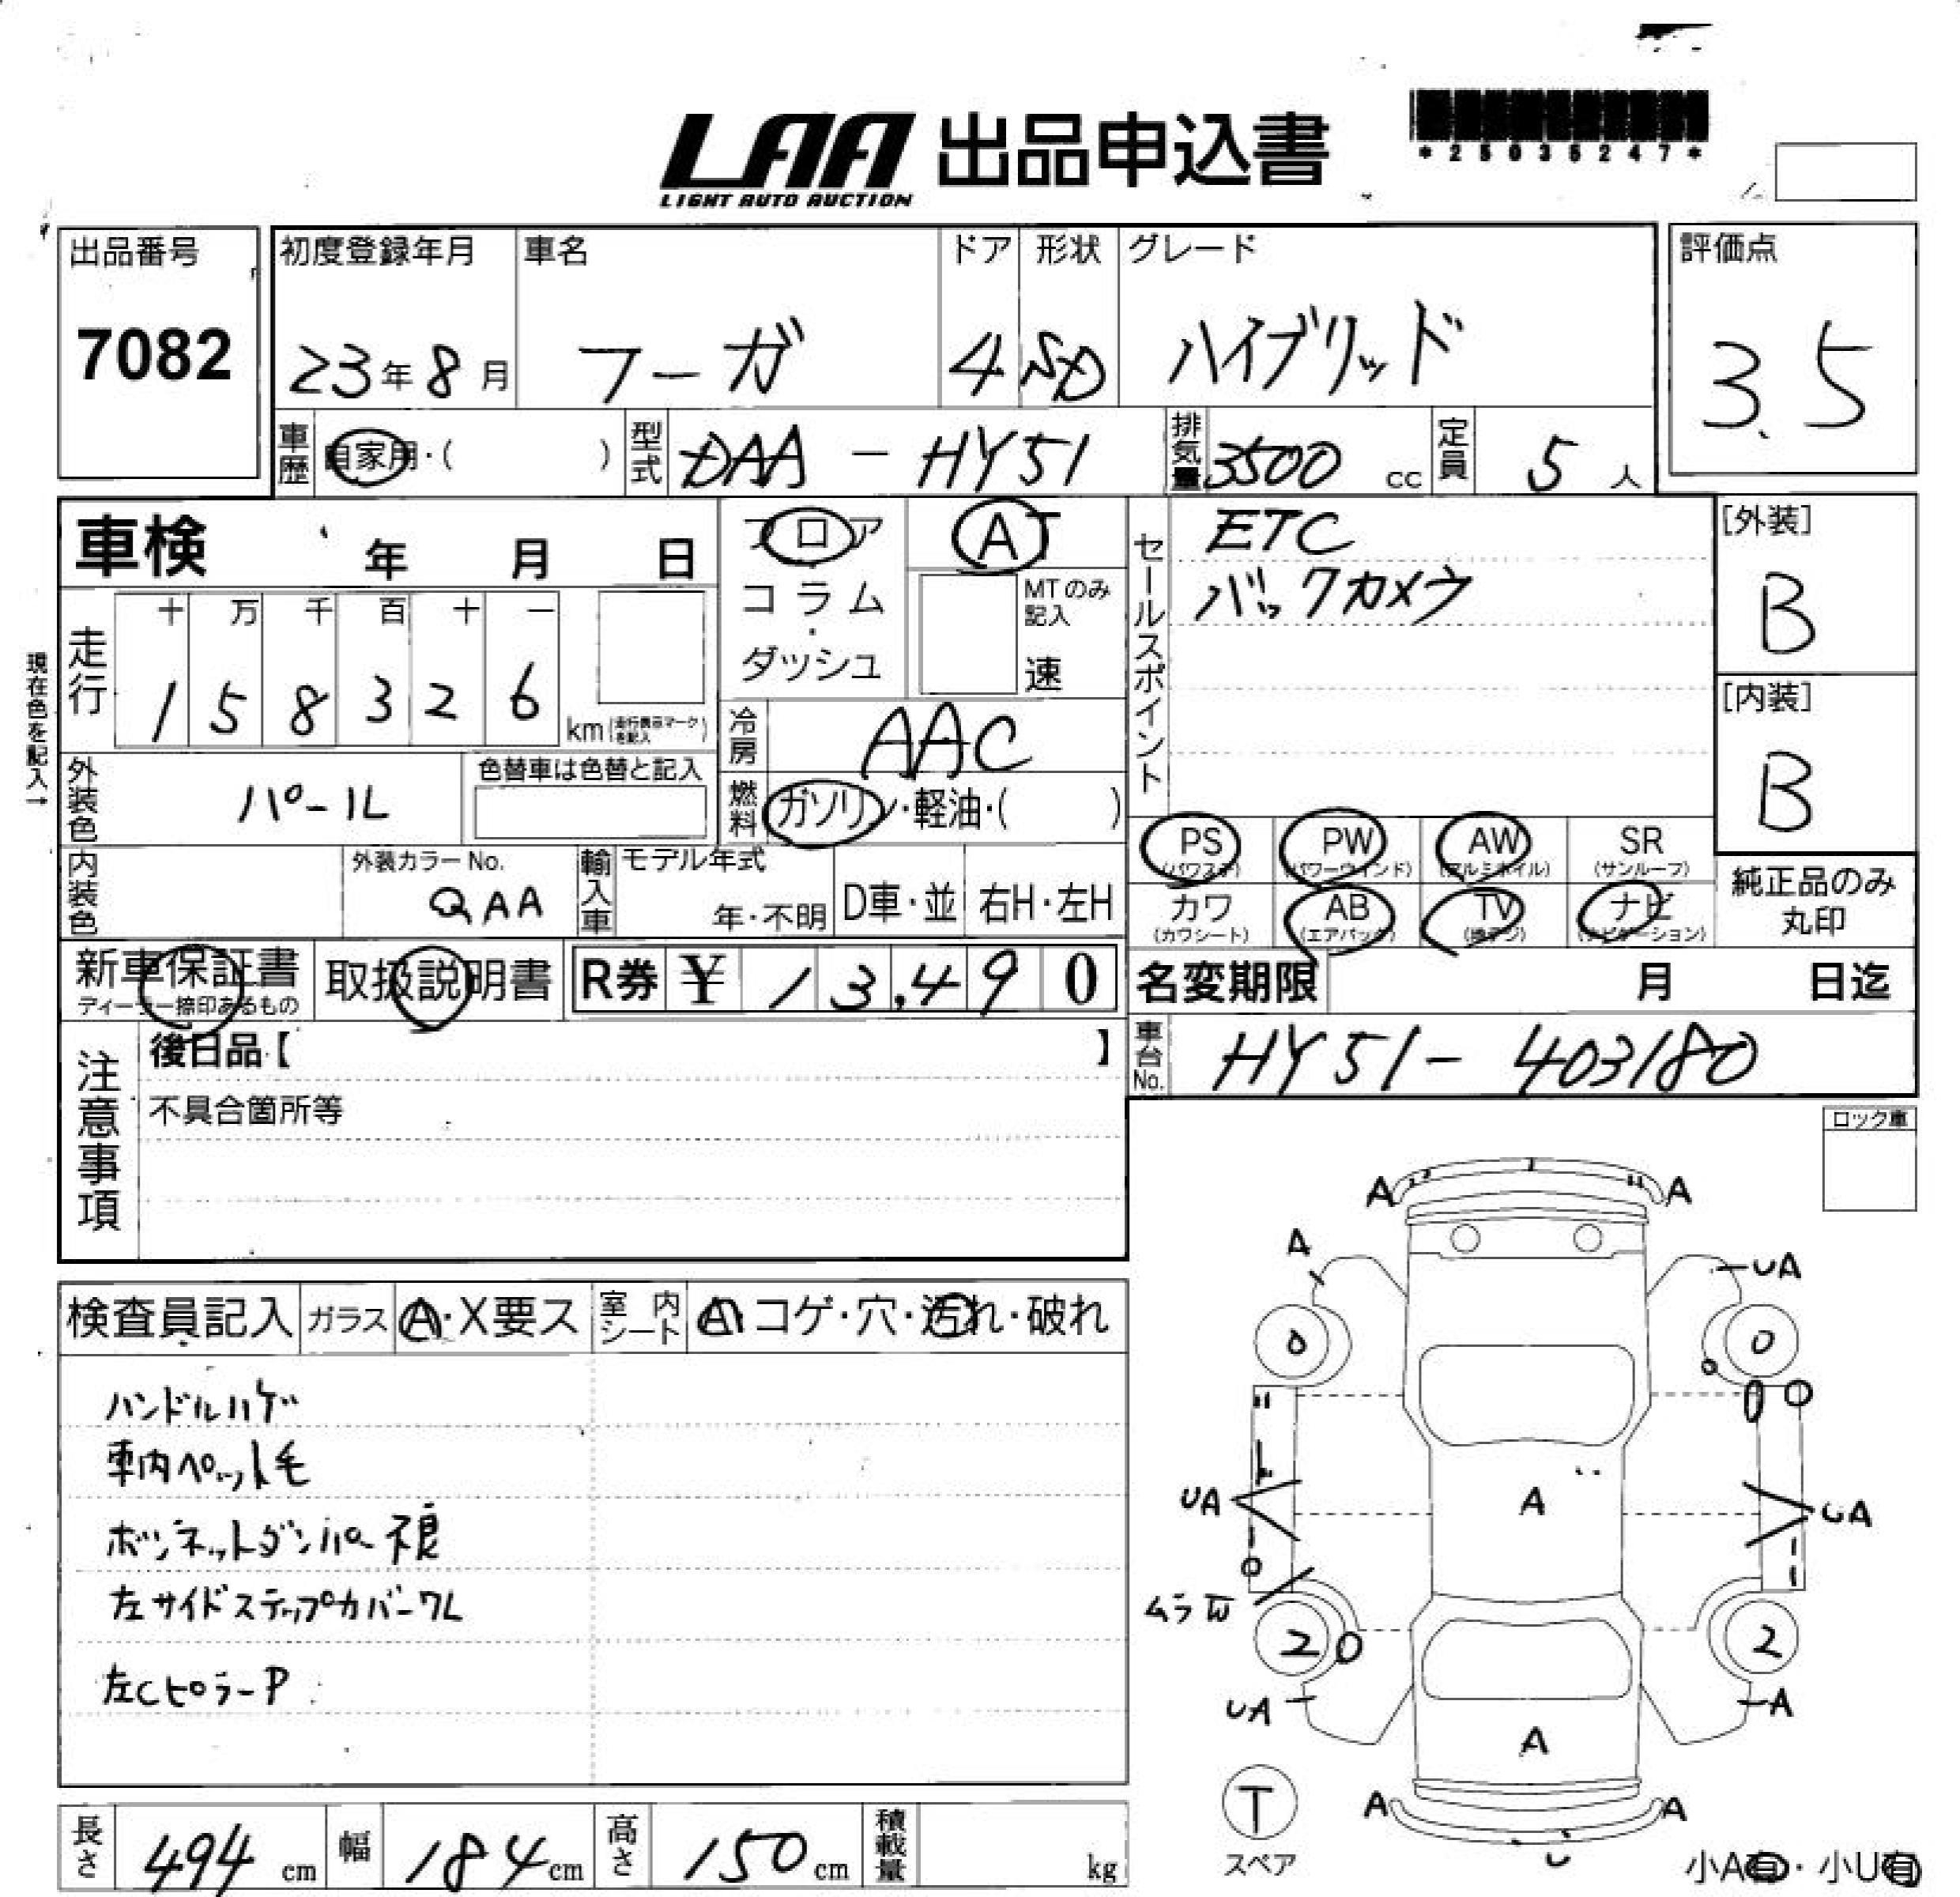 LAA 出品申込書
LIGHT AUTO AUCTION
*25036247*
出品番号
7082
初度登録年月
23年8月
車名
フーガ
ドア
4
形状
SD
グレード
ハイブリッド
評価点
3.5
車歴
自家用・( )
型式
DAA-HY51
排気量
3500 cc
定員
5人
車検 年 月 日
フロア
コラム
・
ダッシュ
AT
MTのみ記入
速
セールスポイント
ETC
バックカメラ
[外装]
B
[内装]
B
現在色を記入→
走行
十 万 千 百 十 一
1 5 8 3 2 6
km(走行表示マークを記入)
冷房
AAC
外装色
パール
色替車は色替と記入
燃料
ガソリン・軽油・( )
PS (パワステ)
PW (パワーウインド)
AW (アルミホイル)
SR (サンルーフ)
カワ (カワシート)
AB (エアバック)
TV
ナビ (ナビゲーション)
純正品のみ
丸印
内装色
外装カラーNo.
QAA
輸入車
モデル年式
年・不明
D車・並
右H・左H
新車保証書
ディーラー捺印あるもの
取扱説明書
R券 ¥ 13,490
名変期限 月 日迄
注意事項
後日品【 】
不具合箇所等
車台No.
HY51-403180
ロック車
検査員記入
ガラス
A・X要ス
室内シート
コゲ・穴・汚れ・破れ
ハンドルハゲ
車内ペット毛
ボンネットダンパー不良
左サイドステップカバーワレ
左CピラーP
A A
A UA
0 0
UA A UA
ムラW
2 2
UA A
A
A A
U
T
スペア
小A有・小U有
長さ
494 cm
幅
184 cm
高さ
150 cm
積載量
kg